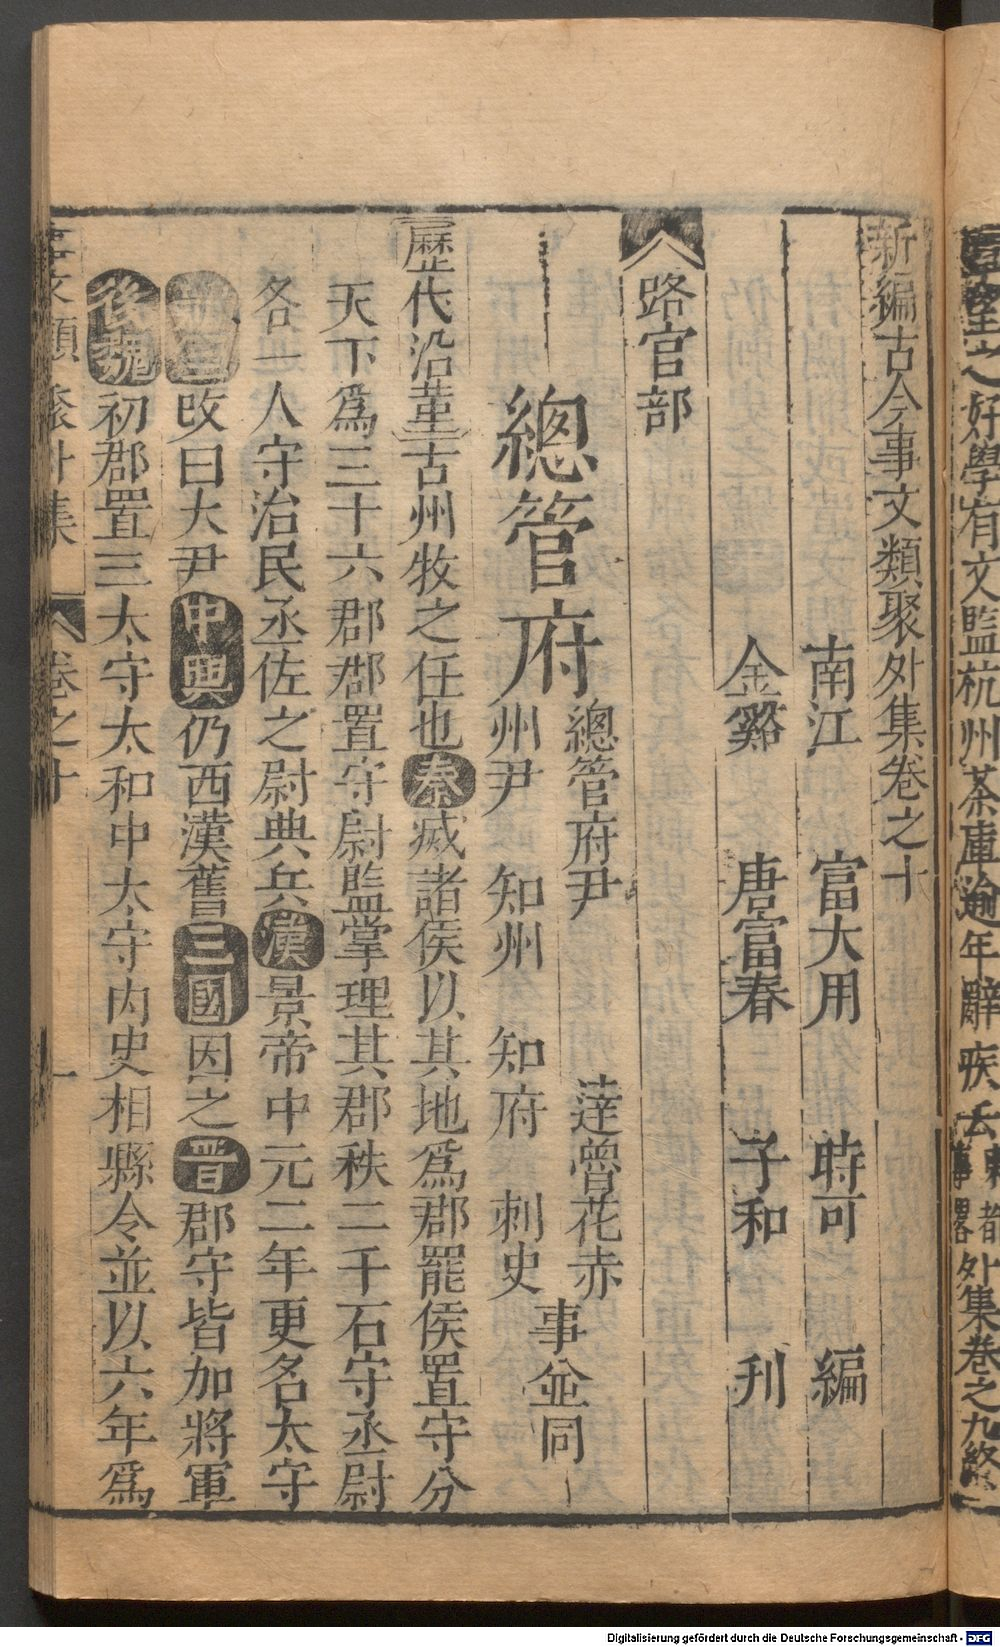 堂之好學有文監杭州茶庫逾年辭疾去東都事畧外集卷之九終
新編古今事文類聚外集卷之十
南江 富大用 時可 編
金谿 唐富春 子和 刋
路官部
總管府
總管府尹 達魯花赤
州尹 知州 知府 刺史
事並同
歷代沿革古州牧之任也秦滅諸侯以其地爲郡罷侯置守分
天下爲三十六郡郡置守尉監掌理其郡秩二千石守丞尉
各一人守治民丞佐之尉典兵漢景帝中元二年更名太守
改曰大尹中興仍西漢舊三國因之晋郡守皆加將軍
後魏初郡置三太守太和中太守内史相縣令並以六年爲
事文類聚外集 卷之十 一
Digitalisierung gefördert durch die Deutsche Forschungsgemeinschaft - DFG